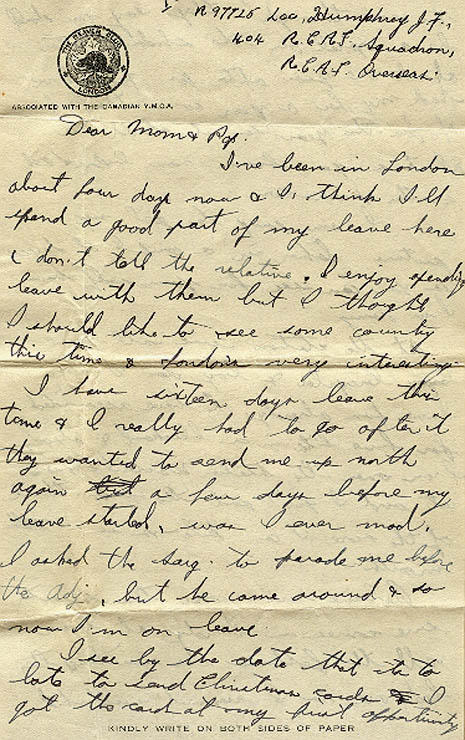 R 97725 Lac, Humphrey J.F.,
404 R.C.A.F. Squadron,
R.C.A.F. Overseas.
THE BEAVER CLUB
LONDON
ASSOCIATED WITH THE CANADIAN Y.M.C.A.
Dear Mom & Pop.
I've been in London
about four days now & I think I'll
spend a good part of my leave here
& don't tell the relative. I enjoy spending
leave with them but I thought
I should like to see some country
this time & London's very interesting.
I have sixteen days leave this
time & I really had to go after it
they wanted to send me up north
again but a few days before my
leave started, was I ever mad.
I asked the sarg. to parade me before
the adj, but he came around & so
now I'm on leave.
I see by the date that its to
late to send Christmas cards I
got the card at my first opportunity
KINDLY WRITE ON BOTH SIDES OF PAPER